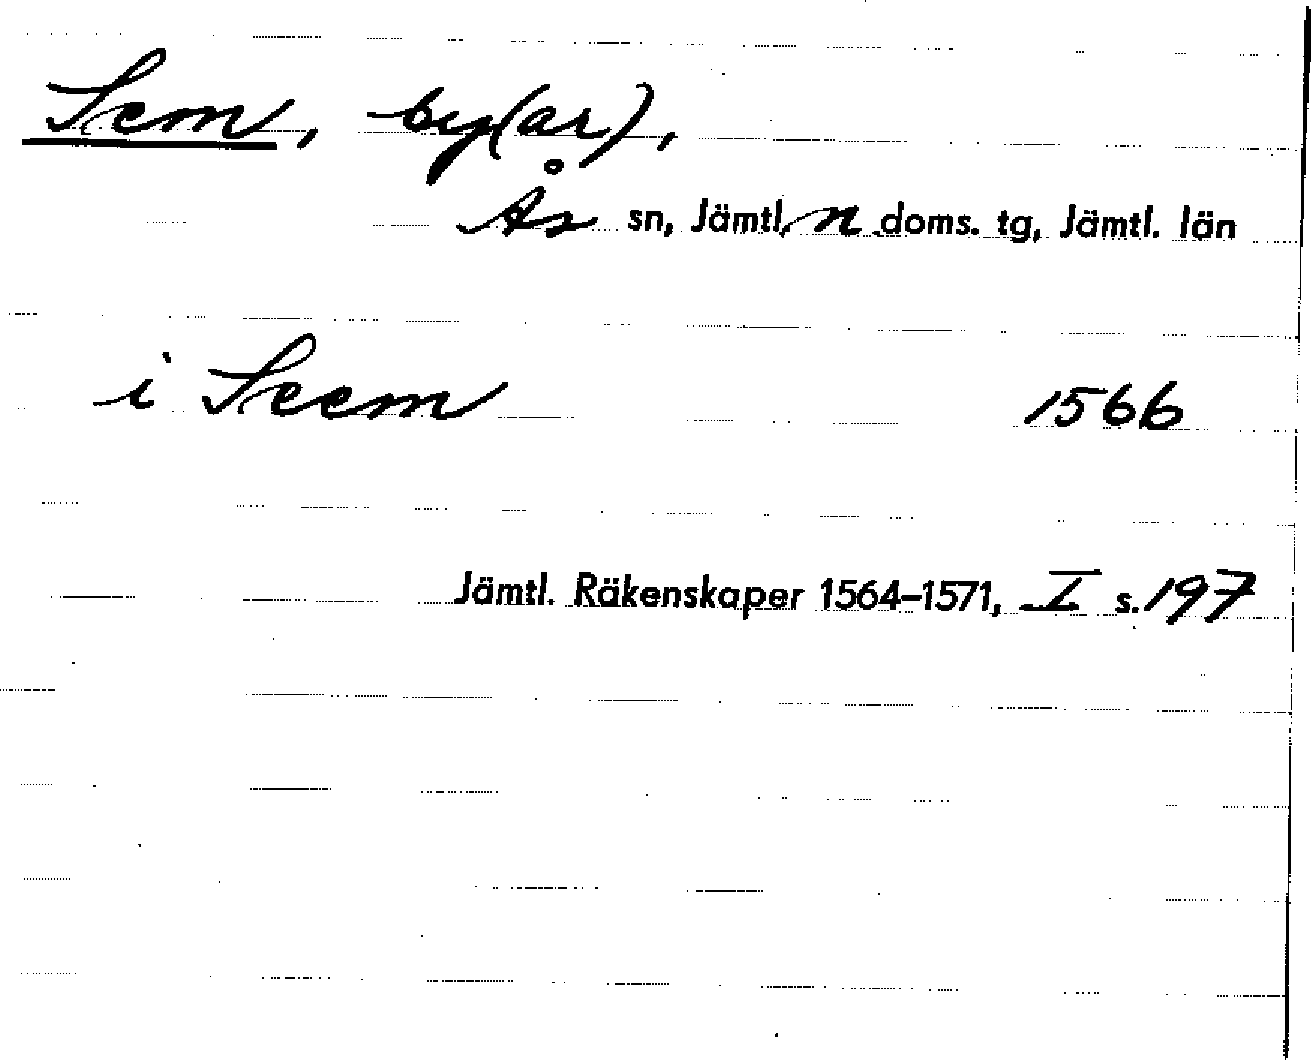 Sem, by(ar),
Ås sn, Jämtl. n doms. tg, Jämtl. län
i Seem 1566
Jämtl. Räkenskaper 1564–1571, I s. 197